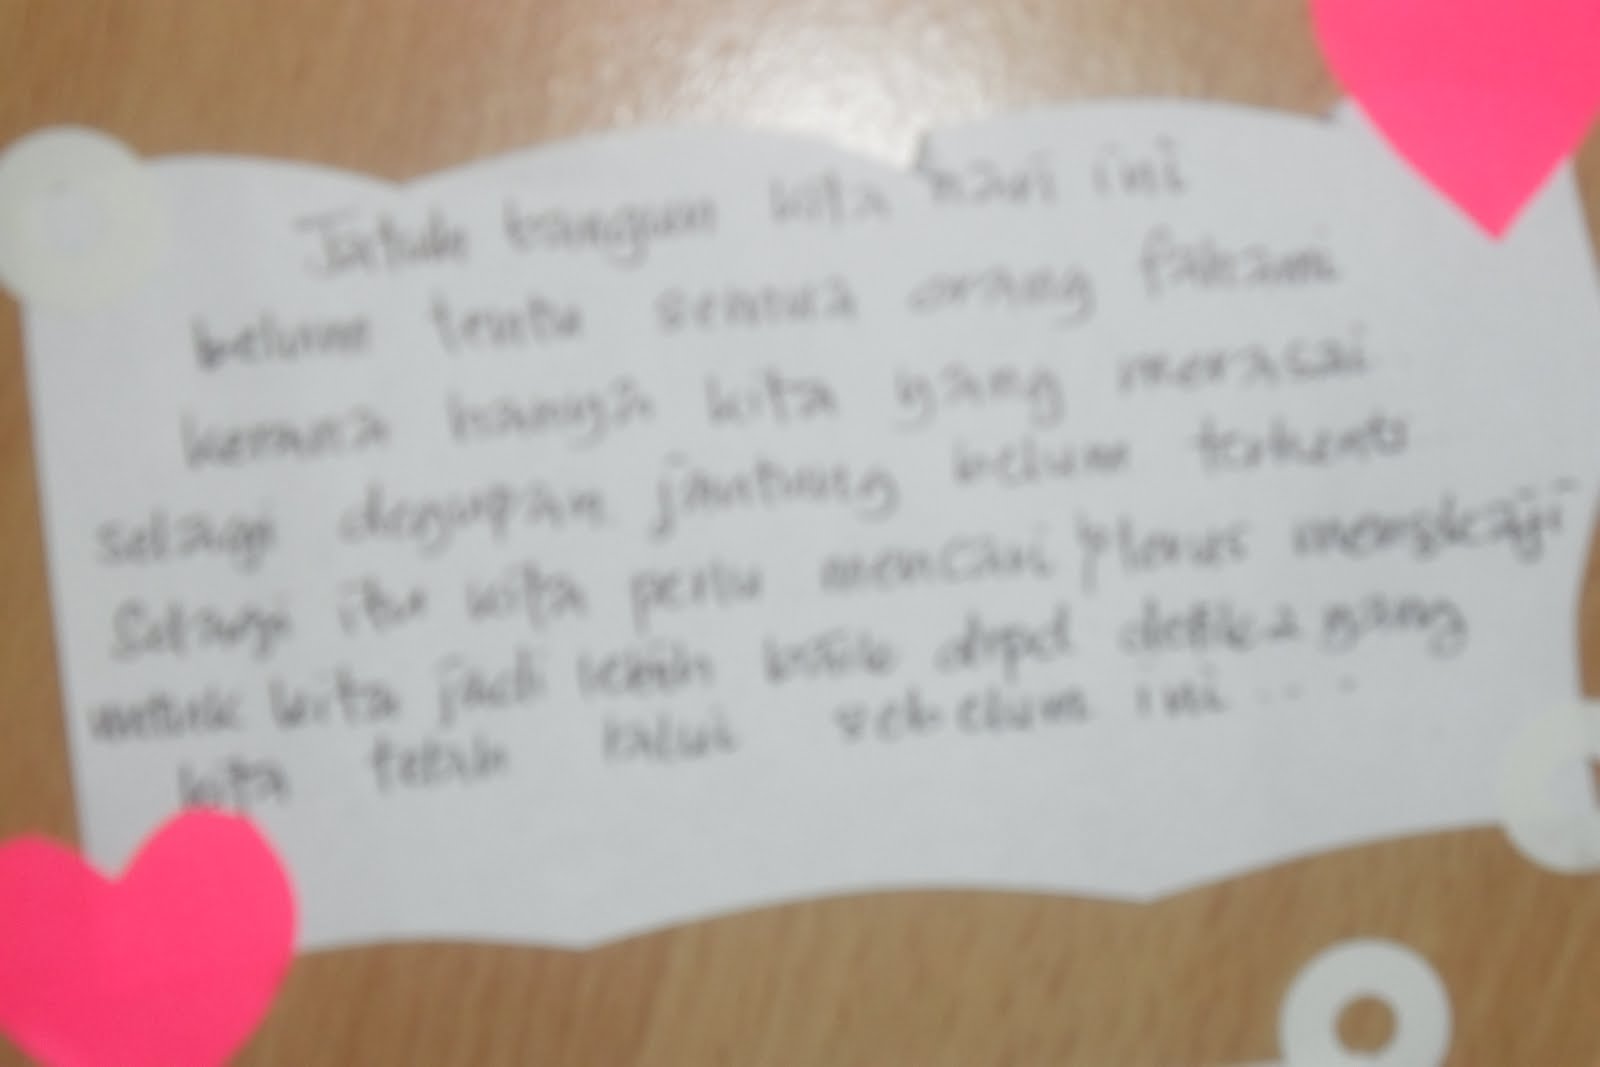 Jatuh bangun kita hari ini
belum tentu semua orang fahami
kerana hanya kita yang merasai
selagi degupan jantung belum terhenti
Selagi itu kita perlu mencari / terus mengkaji
untuk kita jadi lebih baik drpd detik2 yang
kita telah lalui sebelum ini ....